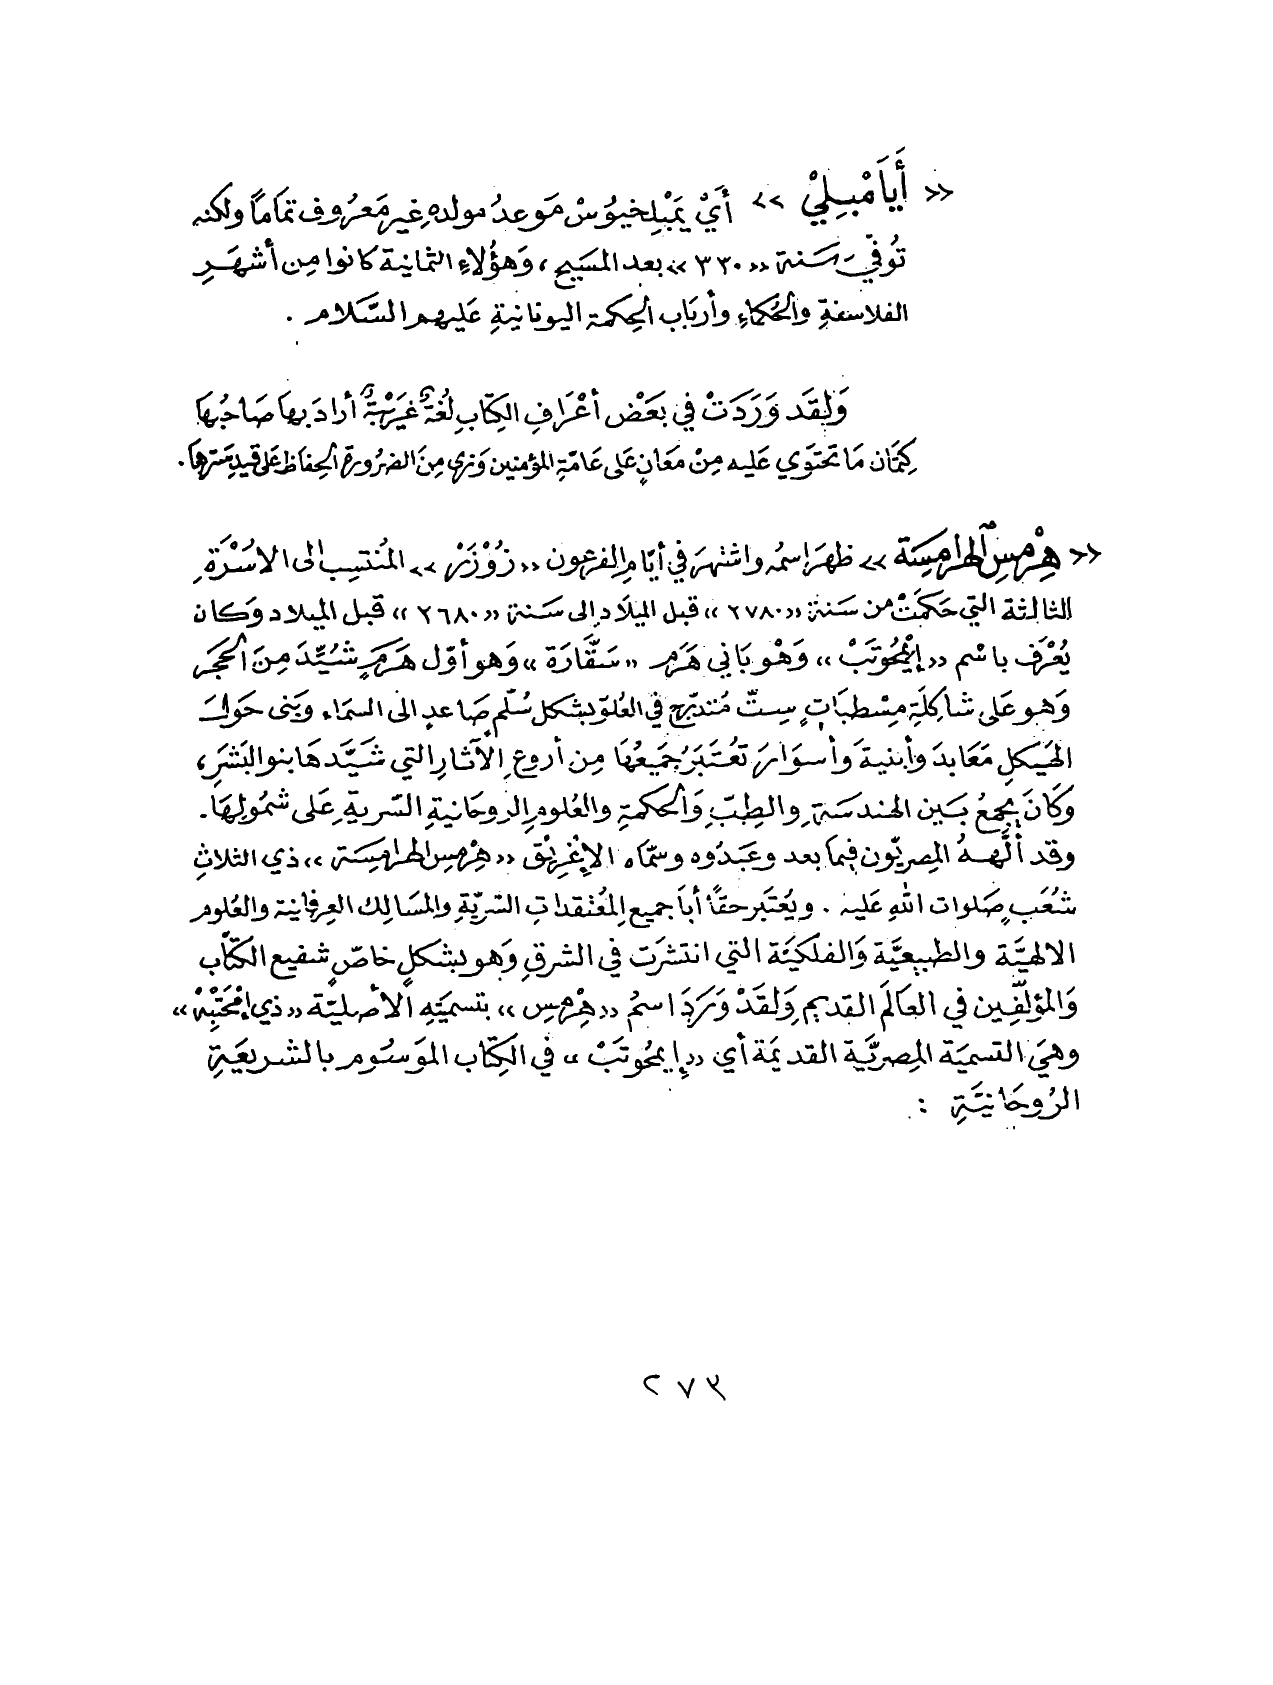 «أَيَامْبِلِيْ» أَيْ يَمْبْلِخْيُوْسْ مَوعدُ مولدهِ غير مَعرُوف تمَامًا ولكنه
تُوفّيَ سَنة «٣٣٠» بعد المسَيح، وَهؤُلاءِ الثمانية كانوا مِن أشهَرِ
الفلاسفةِ والحُكماءِ وأربَاب الحِكمة اليونانيةِ عَليهم السَّلام.
وَلَقَد وَرَدَتْ في بَعَضْ أعْرَافِ الكِتَابِ لُغَةٌ غَرِيْبَةٌ أرادَ بها صَاحبُها
كِتمَان مَا تحتوَي عَليه مِنْ مَعَانٍ عَلى عَامّةِ المؤمنين وَنرى مِنَ الضرُورة الحِفاظ عَلى قيدِ سَترهَا.
«هِرْمِسِ الهرامِسِة» ظهَرَ اسمُه واشتهرَ في أيَّامِ الفرعون «زُوْزَرْ» المُنتسِب الى الاسُرْةِ
الثالثة التي حَكمَتْ من سَنة «٢٧٨٠» قبل الميلَاد إلى سَنة «٢٦٨٠» قبل الميلاد وَكان
يُعْرَف باسْم «إيْمْحُوتَبْ» وَهْو بَاني هَرَم «سَقَّارَة» وَهو أوّل هَرَمٍ شُيِّدَ مِنَ الحَجَر
وَهو عَلى شاكِلَةِ مِسْطبَاتٍ سِتّ مُتدرّج في العُلوّ بشكل سُلّمٍ صَاعدٍ الى السَماء وبَنى حَولَ
الهَيكلِ مَعَابدَ وأبنيةَ وَأسوَارَ تعُتبَرُ جَميعُهَا مِن أروعِ الآثارِ التي شَيَّدهَا بنو البَشَرِ،
وكَانَ يجمعُ بَين الهندسَةِ والطِبِّ وَالحكمةِ والعُلومِ الروحَانيةِ السّريةِ عَلى شمُولهَا.
وقد ألَّههُ المِصريّون فيمَا بعد وعَبَدُوه وسمّاه الإغْريْق «هِرْمِس الهرامِسَة» ذي الثلاثِ
شُعَبٍ صَلوات اللّه عَليه. ويُعتَبر حقًا أبَا جميعِ المُعْتقداتِ السّريّةِ والمسَالِك العِرفانية والعُلوم
الالهيَّة والطبيعيَّة وَالفلكيَّة التي انتشرَت في الشرقِ وَهو بشكلٍ خاصّ شفيع الكتَّاب
وَالمؤلّفِين في العالَم القديم وَلَقَدْ وَرَدَ اسمُ «هِرْمِس» بتسميَتِه الأصليَّة «ذي إمْحَتِبْهْ»
وهيَ التسميَة المِصريَّة القديمَة أي «إيمحُوتَبْ» في الكِتَاب الموَسُوم بالشريعَةِ
الرُوحَانيَّةِ :
٢٧٣